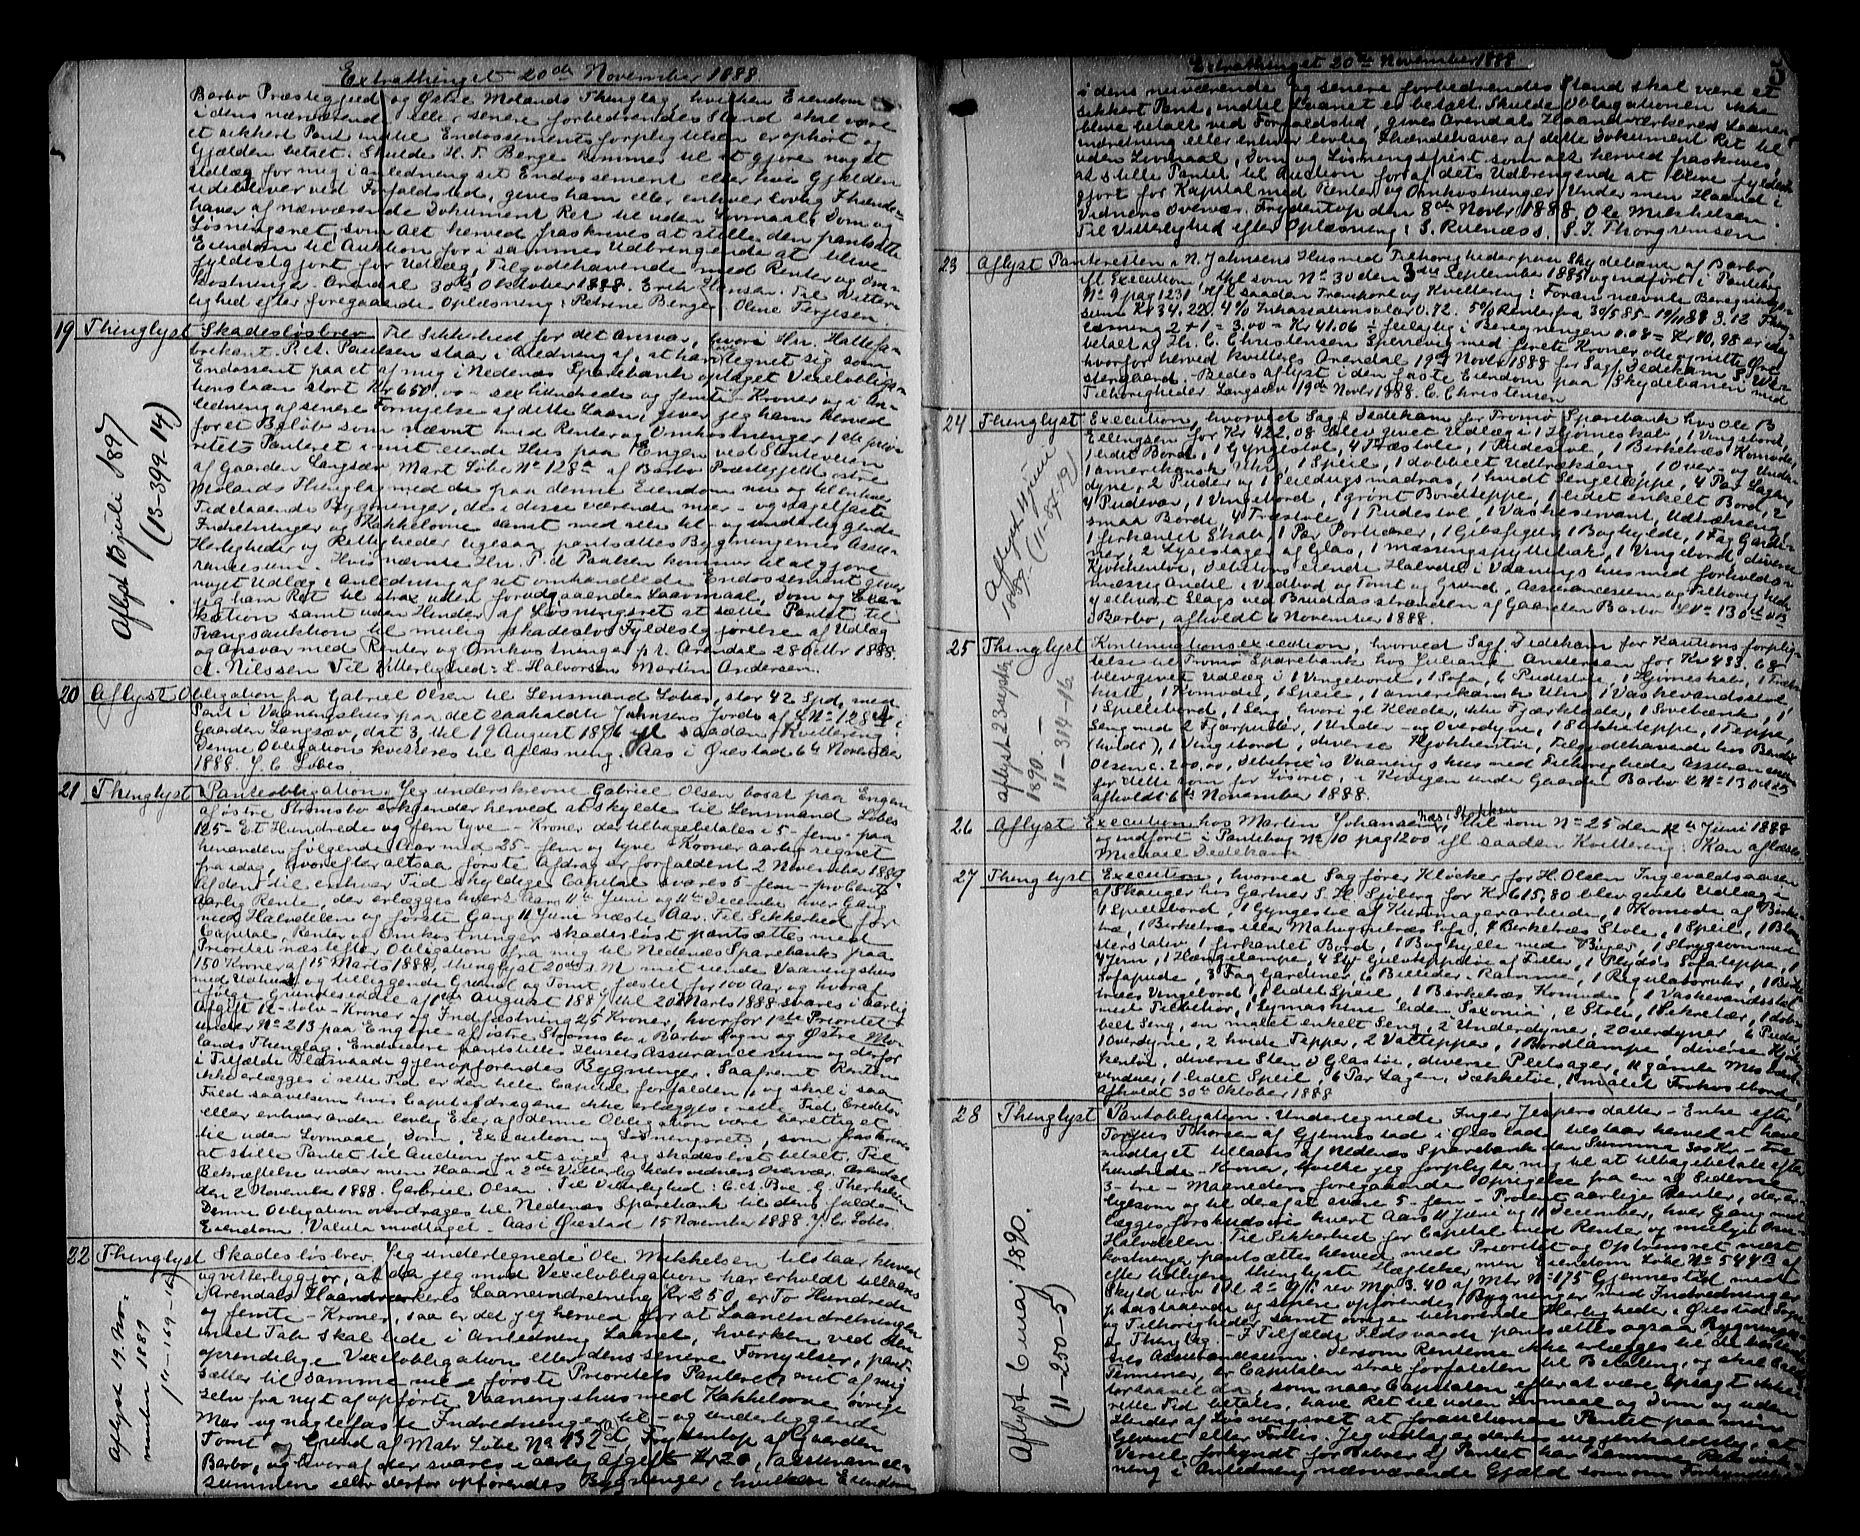 Extrathinget 20de November 1888.
Barbo Præstegjeld og Østre Molands Thinglag, hvilken Eiendom
i dens nærværende eller senere forbedrendes Stand skal være
et sikkert Pant indtil Endossementsforpligtelsen er ophørt og
Gjælden betalt. Skulde H. T. Berge komme til at gjøre noget
Udlæg for mig i anledning set Endossement eller hvis Gjælden
udebliver ved Forfaldstid, gives ham eller enhver lovlig Ihænde-
haver af nærværende Dokument Ret til uden Lovmaal, Dom og
Løsningsret, som alt herved fraskrives at stille den pantsatte
Eiendom til Auktion for i sammes Udbringende at blive
fyldestgjort for Udlæg, Tilgodehavende med Renter og Om-
kostninger. Arendal 30te Oktober 1888. Erik Hansen. Til Vitter-
lighed efter foregaaende Oplæsning: Petrine Berge Oline Terjesen.
19 Thinglyst Skadesløsbrev Til Sikkerhed for det Ansvar, hvori Hr. Hattefa-
brikant P. A. Paulsen staar i Anledning af, at han har tegnet sig som
Endossent paa et af mig i Nedenæs Sparebank optaget Vexelobliga-
tionslaan stort Kr 650,00 - sexhundrede og femti - Kroner og i An-
ledning af senere Fornyelse af dette Laan, giver jeg ham herved
for et Beløb som nævnt med Renter og Omkostninger 1ste prio-
ritets Panteret i mit eiende Hus paa Engen ved Stenteveien
af Gaarden Langsæv Mart Løbe No 128a af Barbo Præstegjeld østre
Molands Thinglag med de paa denne Eiendom nu og til enhver
Tid staaende Bygninger, des i disse værende mur- og nagelfaste
Indretninger og Kakkelovne samt med alle til- og underliggende
Herligheder og Rettigheder ligesaa pantsættes Bygningernes Assu-
rancesum. Hvis nævnte Hr. P. A. Paulsen kommer til at gjøre
noget Udlæg i Anledning af set omhandlede Endossement giver
jeg ham Ret til strax uden forudgaaende Laavmaal, Dom og Exe-
kution samt uden Hinder af Løsningsret at sætte Pantet til
Tvangsauktion til mulig skadesløs Fyldestgjørelse af Udlæg
og Ansvar med Renter og Omkostninger p.t. Arendal 28 Octbr 1888.
A. Nilssen Til Vitterlighed: L. Halvorsen Martin Andersen.
Aflyst 13 juli 1897
(13-399 14)
20 Aflyst Obligation fra Gabriel Olsen til Lensmand Løbes, stor 42 Spd, med
Pant i Vaaningshus paa det saakaldte Johnsens Jords af LNo 128a i
Gaarden Langsæv, dat 3, tl 19 August 1876 ifl saadan Kvittering:
Denne Obligation kvitteres til Aflæsning. Aas i Øiestad 6te November
1888. J. C. Løbes
21 Thinglyst Panteobligation. Jeg underskrevne Gabriel Olsen bosat paa Engen
af østre Strømsbo erkjender herved at skylde til Lensmand Løbes
125- Et Hundrede og fem tyve - Kroner der tilbagebetales i 5- fem- paa
hinanden følgende Aar med 25 - fem og tyve - Kroner aarlig regnet
fra idag, hvorefter altsaa første Afdrag er forfaldent 2 November 1889
Af den til enhver Tid skyldige Capital svares 5- fem - pro Cents
aarlig Rente, der erlægges hvert Aars 11te Juni og 11te December hver Gang
med Halvdelen og første Gang 11 Juni næste Aar. Til Sikkerhed for
Capital, Renter og Omkostninger skadesløst pantsættes med
Prioritet næst efter Obligation fra mig til Nedenæs Sparebank paa
150 Kroner af 15 Marts 1888, thinglyst 20de s.M. mit eiende Vaaningshus
med Udhus og tilliggende Grund og Tomt, fæstet for 100 Aar og hvoraf
følge Grundseddel af 1ste August 1887 tl 20 Marts 1888 svares i aarlig
Afgift 12- tolv - Kroner og Indfæstning 25 Kroner, hverfor 1ste Prioritet
under No 213 paa Engene af østre Strømsbo i Barbo Sogn og Østre Mo-
lands Thinglag. Endvidere pantstilles Husets Assurancesum og derfor
i Tilfælde Ildsvaade gjenopførendes Bygninger. Saafremt Renten
ikke erlægges i rette Tid er den hele Capital forfalden, og skal i saa
Fald saavelsom hvis Capitalafdragene ikke erlægges i rette Tid Creditor
eller enhver anden lovlig Eier af denne Obligation være berettiget
til uden Lovmaal, Dom, Execution og Løsningsret, som fraskrives
at stille Pantet til Auction for at søge sig skadesløst betalt. Til
Bekræftelse under min Haand i 2de Vitterlighedsvidners Overvær. Arendal
den 2 November 1888. Gabriel Olsen. Til Vitterlighed: C. A. Boe. G. Therkelsen
Denne Obligation overdrages til Nedenæs Sparebank til dens fulde
Eiendom. Valuta modtaget - Aas i Øiestad 15 November 1888. J. Chr Løbes.
22 Thinglyst Skadesløsbrev. Jeg undertegnede Ole Mikkelsen tilstaar herved
og vitterliggjør, at da jeg mod Vexelobligation har erholdt tillaans
i Arendals Haandverkeres Laaneindretning Kr 250, er To Hundrede
og femti - Kroner, saa er det jeg herved for at Laaneindretningen
intet Tab skal lide i Anledning Laanet, hverken ved den
oprindelige Vexelobligation eller dens senere Fornyelser, pant-
sætter til samme med første Prioritets Panteret mit af mig
selv fra nyt af opførte Vaaningshus med Kakkelovne øvrige
Mur- og naglefaste Indredninger til- og underliggende
Tomt og Grund af Matr Løbe No 132d, Frydentop af Gaarden
Barbo, og hvoraf der svares i aarlig Afgift Kr 20, Assurance-
summen eller derfor opførendes Bygninger, hvilken Eiendom
Aflyst 19. No-
vember 1889
11-169-15
Extrathinget 20de November 1888
5
i dens nærværende og senere forbedrendes Stand skal være et
sikkert Pant, indtil Laanet er betalt. Skulde Obligationen ikke
blive betalt ved Forfaldstid, gives Arendals Haandværkeres Laane-
indretning eller enhver lovlig Ihændehaver af dette Dokument Ret til
uden Lovmaal, Dom og Løsningsfrist som alt herved fraskrives,
at stille Pantet til Auction for af dets Udbringende at blive fyldest-
gjort for Kapital med Renter og Omkostninger. Under min Haand i
Vidners Overvær. Frydentop den 8de Novbr 1888. Ole Mikkelsen
Til Vitterlighed efter Oplæsning: S. Risenæss. S. T. Thorgrimsen
23 Aflyst Panteretten i N. Johnsens Hus med Tilhørigheder paa Skydebanen af Barbo,
ifl Execution, tl som No 30 den 3die September 1885 og anført i Pantebog
No 9 pag 1231 ifl saadan Transport og Kvittering: Foran nævnte Beregnings
sum Kr 34,22. 4% Inkassationssalær 0.72. 5% Renter fra 30/5 85 - 19/11 88 3.12 Thing-
læsning 2 + 1 = 3.00 = Kr 41.06 ÷ feilagtig i Beregningen 0.08 = Kr 40,98 er idag
betalt af Hr. C. Christensen Sperrevig med firti Kroner otte og nitti Øre
hvorfor herved kvitteres Arendal 19de Novbr 1888 for Sagf. Dedekam S. We-
stergaard. - Bedes aflyst i den faste Eiendom paa Skydebanen med
Tilhørigheder Langsæv 19de Novbr 1888. C. Christensen
24 Thinglyst Execution, hvorved Sagf. Dedekam for Tromø Sparebank hos Ole B
Ellingsen for Kr 422,08 blev givet Udlæg i 1 Hjørneskab, 1 Vingebord,
1 lidet Bord, 1 Gyngestol, 4 Træstole, 1 Pudestol, 1 Birketræs Komode,
1 amerikansk Uhr, 1 Speil, 1 dobbelt Udtrækseng, 1 Over- og Under-
dyne, 2 Puder og 1 Seildugsmadras, 1 hvidt Sengeteppe, 4 Par Lagen,
4 Pudevar, 1 Vingebord, 1 grønt Bordteppe, 1 lidet enkelt Bord, 2
smaa Borde, 4 Træstole, 1 Pudestol, 1 Vaskeservant, Udtrækseng
1 firkantet Skab, 1 Par Portierer, 1 Gibsfigur, 1 Boghylde, 1 Fag Gardi-
ner, 2 Lysestager af Glas, 1 messingspyttebak, 1 Vingebord, diverse
Kjøkkentøi, Debitors eiende Halvdel i Vaanings hus med forholds-
mæssig Andel i Vedbod og Tomt og Grund, Assurancesum og Tilhørigheder
af ethvert Slags ved Brudnasstranden af Gaarden Barbo LNo 130
i Barbo, afholdt 6 November 1888.
Aflyst 11 juni
1889. (11-87-19)
25 Thinglyst Kontinuationsexecution, hvorved Sagf. Dedekam for Kautions forplig-
telse til Tromø Sparebank hos Juliane Andersen for Kr 433,68
blev givet Udlæg i 1 Vingebord, 1 Sofa, 6 Pudestole, 1 Hjørneskab, 1 Træk-
kiste, 1 Komode, 1 Speil, 1 amerikansk Uhr, 1 Vaskevandsstol
1 Spillebord, 1 Seng, hvori gl Klæder, ikke Fjærklæder, 1 Sovebænk, 1
Seng med 2 Fjærpuder, 1 Under- og Overdyne, 1 Stikketeppe, 1 Teppe,
(hvidt), 1 Vingebord, diverse Kjøkkentøi, Tilgodehavende hos Bendix
Olsen c. 200,00, Debitrix's Vaaningshus med Tilhørigheder Assurancesum
for dette som for Løsøret, i Kvigen under Gaarden Barbo LNo 130
afholdt 6te November 1888.
aflyst 23 septbr
1890 -
11-314-16
26 Aflyst Execution hos Martin Johansen, næs i Stokken tl som No 25 den 12te Juni 1888
og indført i Pantebog No 10 pag 1200 ifl saadan Kvittering: Kan aflæses
Michael Dedekam
27 Thinglyst Execution, hvorved Sagfører Kløcker for H. Olsen Ingevaldsaasen
af Skauger hos Gartner S. H. Sjøberg for Kr 615,80 blev givet Udlæg i
1 Spillebord, 1 Gyngestol af Kurvmagerarbeide, 1 Komode af Birke-
træ, 1 Birketræs eller Mahognitræs Sofa, 4 Birketræs Stole, 1 Speil, 1 Blom-
sterstativ, 1 firkantet Bord, 1 Boghylle med Bøger, 1 Strygeovn med
4 Jern, 1 Hængelampe, 4 Stk Gulvteppetøi af Filler, 1 Plyds Sofateppe, 1
Sofapude, 3 Fag Gardiner, 6 Billeder i Ramme, 1 Regulatoruhr, 1 Birke-
træs Vingebord, 1 lidet Speil, 1 Birketræs Komode, 1 Vaskevandsstol
med Tilbehør, 1 Symaskine liden "Saxonia", 2 Stole, 1 Sekretær, 1 dob-
belt Seng, en malet enkelt Seng, 2 Underdyner, 2 Overdyner, 6 Puder
1 Overdyne, 2 hvide Tepper, 2 Vattepper, 1 Bordlampe, diverse Kjøk-
kentøi, diverse Sten & Glastøi, diverse Pletsager, 11 gamle Misbænk-
vinduer, 1 lidet Speil, 6 Par Lagen, Dækketøi, 1 malet Frokostbord,
Afholdt 30te Oktober 1888
28 Thinglyst Pantobligation. Undertegnede Inger Jespersdatter - Enke efter
Torjus Thorsen af Gjennestad i Øiestad tilstaar herved at have
modtaget tillaans af Nedenæs Sparebank den Summa 300 Kr - tre
hundrede - Kroner, hvilke jeg forpligter mig til at tilbagebetale efter
3- tre - Maaneders foregaaende Opsigelse fra en af Siderne
ligesom og til deraf at svare 5 - fem - Procent aarlige Renter, der er-
lægges forskudsvis hvert Aars 11 Juni og 11 December, hver Gang med
Halvdelen. Til Sikkerhed for Capital med Rente og mulige Om-
kostninger pantsættes herved med Prioritet og Optrinsret næst
efter tidligere thinglyste Hæftelser min Eiendom Løbe No 544B af
Skyld urv 1 Dl 2 O/1 S. rev Mp 3.40 af Mtr No 175 Gjennestad med
paastaaende og senere opførendes Bygninger med Indredninger
og Tilhørigheder samt øvrige behørende Herligheder i Øiestad Sogn
og Thinglag - I Tilfælde Ildsvaade pansættes ogsaa Bygninger-
nes Assurancesum. Dersom Renterne ikke erlægges til de bestemte
Terminer, er Capitalen strax forfalden til Betaling, og skal Cre-
ditor saavel da, som naar Capitalen efter at være opsagt ikke i
rette Tid betales, have Ret til uden Lovmaal og Dom og uden
Hinder af Løsningsret at forauctionere Pantet paa min
Gevinst eller Forlis. Jeg vedtager derhos uigjenkaldelig, at
Varsel, forkyndt for Beboer af Pantet har samme Retsvirk-
ning i Anledning nærværende Gjæld som om Forkyndelse
Aflyst 6 maj 1890.
(11-200-5)